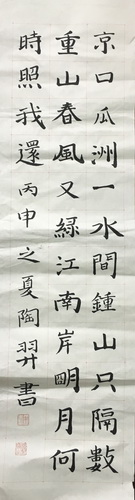 京口瓜洲一水間鍾山只隔數
重山春風又緑江南岸明月何
時照我還丙申之夏陶羿書